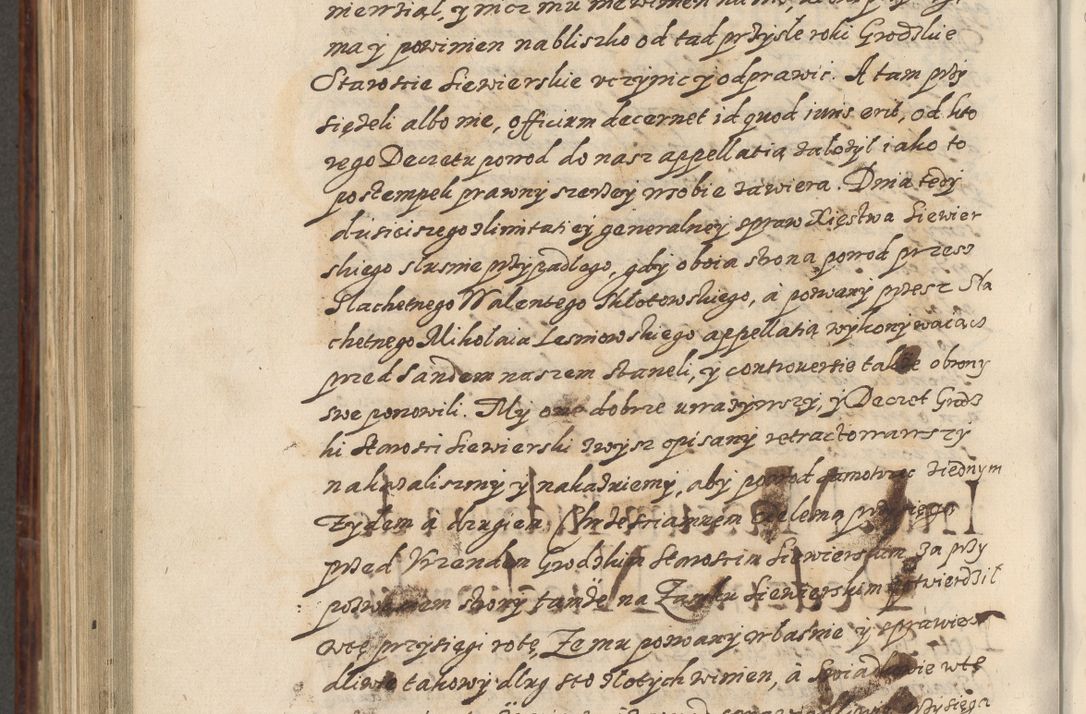 ma y powinien nabliszko od tad przyśle roki Grodzkie
Starostie Siewierskie uczynic y odprawic. A tam przy
sięzeli albo nie, officium decernet id quod iuris erit, od kto
rego Decretu powod do nasz appellatią założył iako to
postempek prawny szerzey w sobie zawiera. Dnia tedy
dzisieiszego z limitatiey generalney spraw Xięstwa Siewier
skiego slusnie przypadlego, gdy oboia strona powod przesz
Slachetnego Walentego Skłotowskiego, a pozwany przesz Sla
chetnego Mikolaia Lesniowskiego appellatią wykonywaiąc
przed Sandem naszem staneli, y controuersie takze obrony
swe ponowili. My one dobrze uwazywszy, y Decret Grodz
ki Starosti Siewierski zwysz opisany retractowawszy
nakazalismy y nakazuiemy, aby powod samotrzec z iednym
Zydem a drugiem Chrzescianinem przysięgą
przed Vrzendem Grodzkim Starostin Siewierskim za przy
pozwaniem strony tamże na Zamku Siewierskim potwierdzil
wtę przysięgi rotę, Ze mu pozwany wlasnie y sprawied
dliwie takowy dlug sto zlotych winien, a Swiadkowie wtę